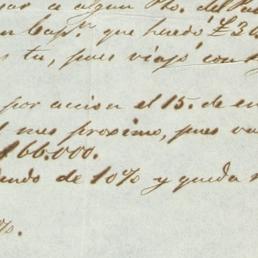 sar a algun Pto. del
n Capn. que heredó £36
s tu, pues viajó con
por accion el 15. de en
mes proximo, pues va
$66.000.
endo de 10% y queda
%.